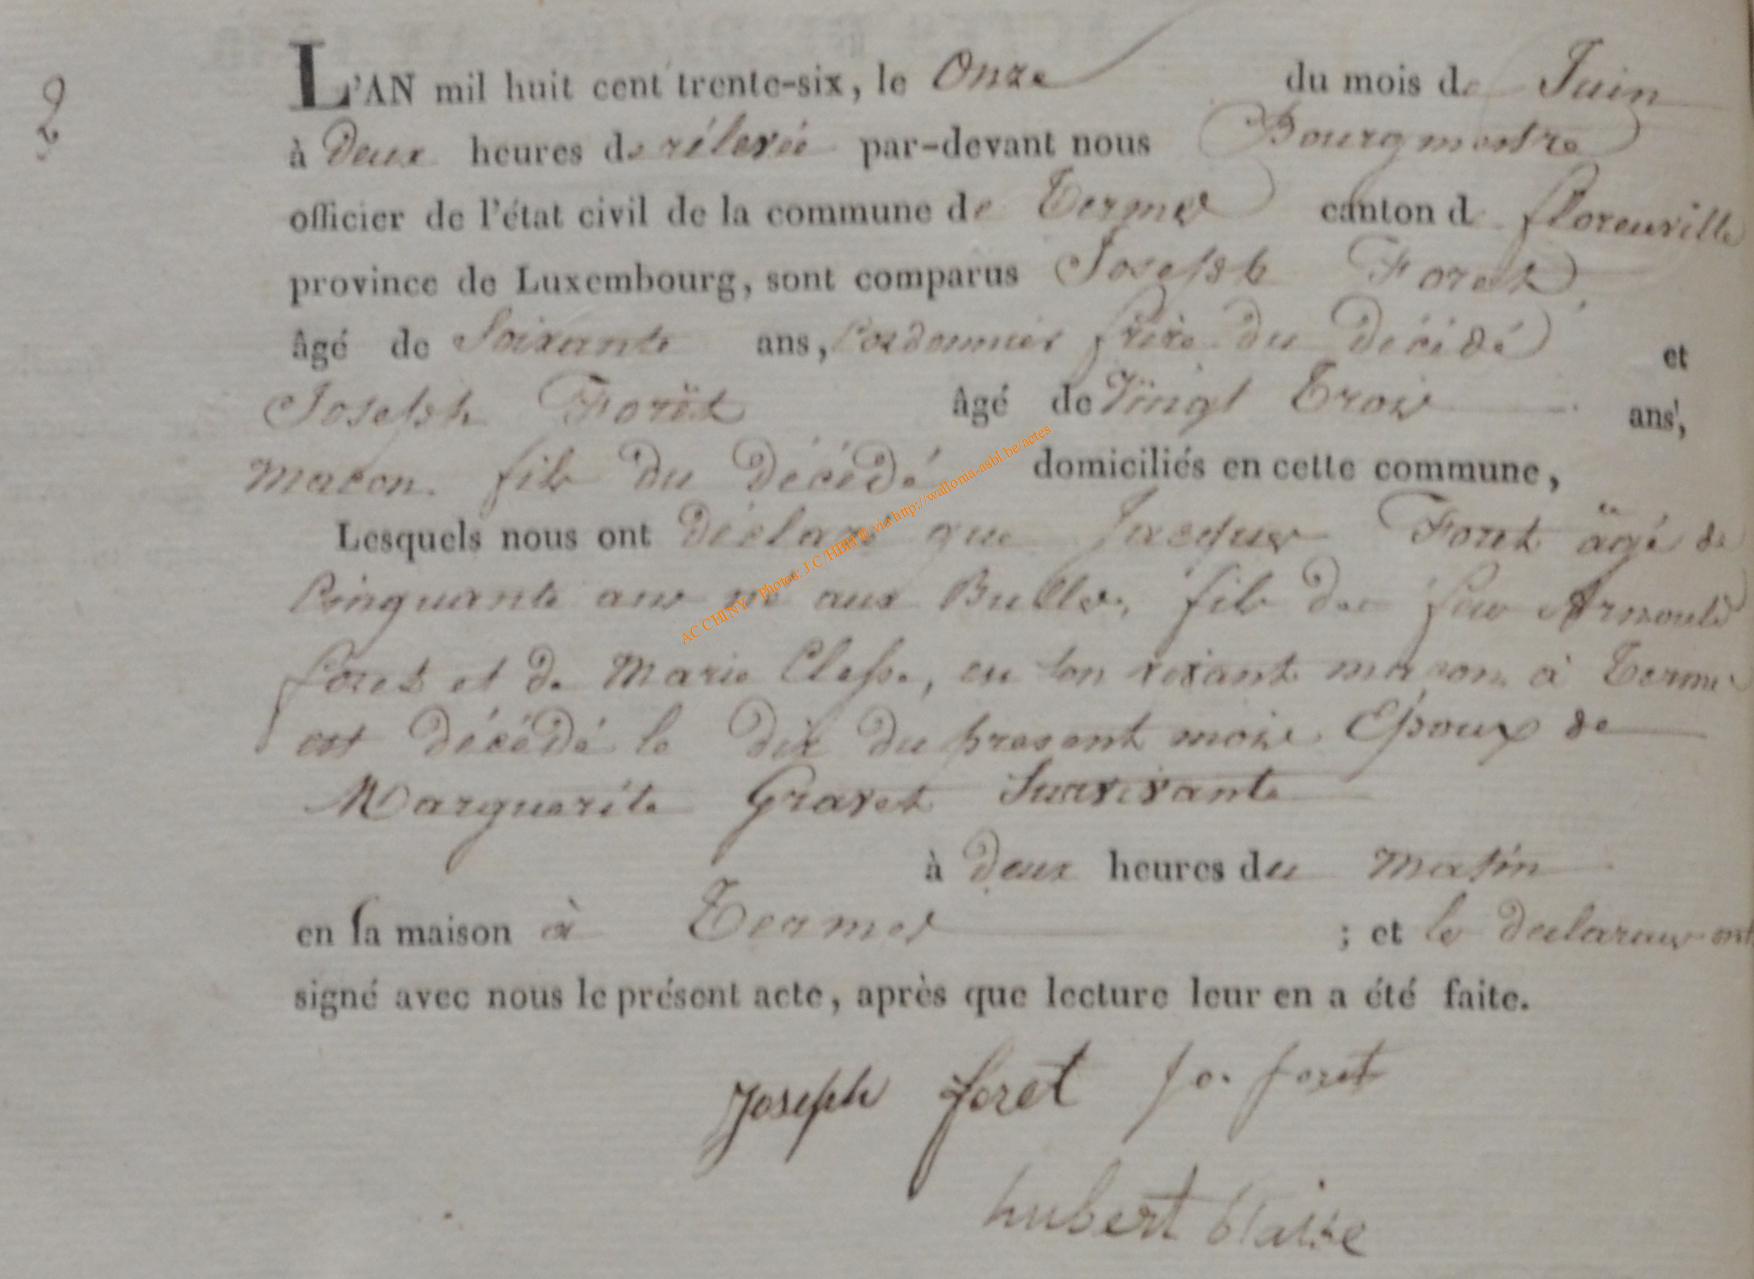 2
L'AN mil huit cent trente-six, le Onze du mois de Juin
à Deux heures de rélevée par-devant nous Bourgmestre
officier de l'état civil de la commune de Termes canton de florenville
province de Luxembourg, sont comparus Joseph Foret
âgé de Soixante ans, Cordonnier frère du décédé et
Joseph Forët âgé de Vingt Trois ans,
Macon fils du décédé domiciliés en cette commune,
Lesquels nous ont déclaré que Jacques Foret agé de
Cinquante ans né aux Bulles, fils de feu Arnould
foret et de Marie Clesse, en son vivant maçon à Termes
est décédé le dix du present mois Epoux de
Marguerite Gravet Survivante
à deux heures du Matin
en sa maison à Termes ; et les declarans ont
signé avec nous le présent acte, après que lecture leur en a été faite.
Joseph foret jo. foret
hubert blaise
AC CHINY - Photos: J.C HBHR via http://wallonia-asbl.be/actes